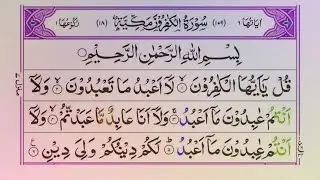 اٰیَاتُهَا ٦ (١٠٩) سُوْرَةُ الْکٰفِرُوْنَ مَکِّیَّةٌ (١٨) رُکُوْعُهَا ١
بِسْمِ اللّٰهِ الرَّحْمٰنِ الرَّحِیْمِ
قُلْ یٰۤاَیُّهَا الْکٰفِرُوْنَ ۙ١ لَاۤ اَعْبُدُ مَا تَعْبُدُوْنَ ۙ٢ وَلَاۤ
اَنْتُمْ عٰبِدُوْنَ مَاۤ اَعْبُدُ ۚ٣ وَلَاۤ اَنَا عَابِدٌ مَّا عَبَدْتُّمْ ۙ٤ وَلَاۤ
اَنْتُمْ عٰبِدُوْنَ مَاۤ اَعْبُدُ ؕ٥ لَکُمْ دِیْنُکُمْ وَلِیَ دِیْنِ ٦